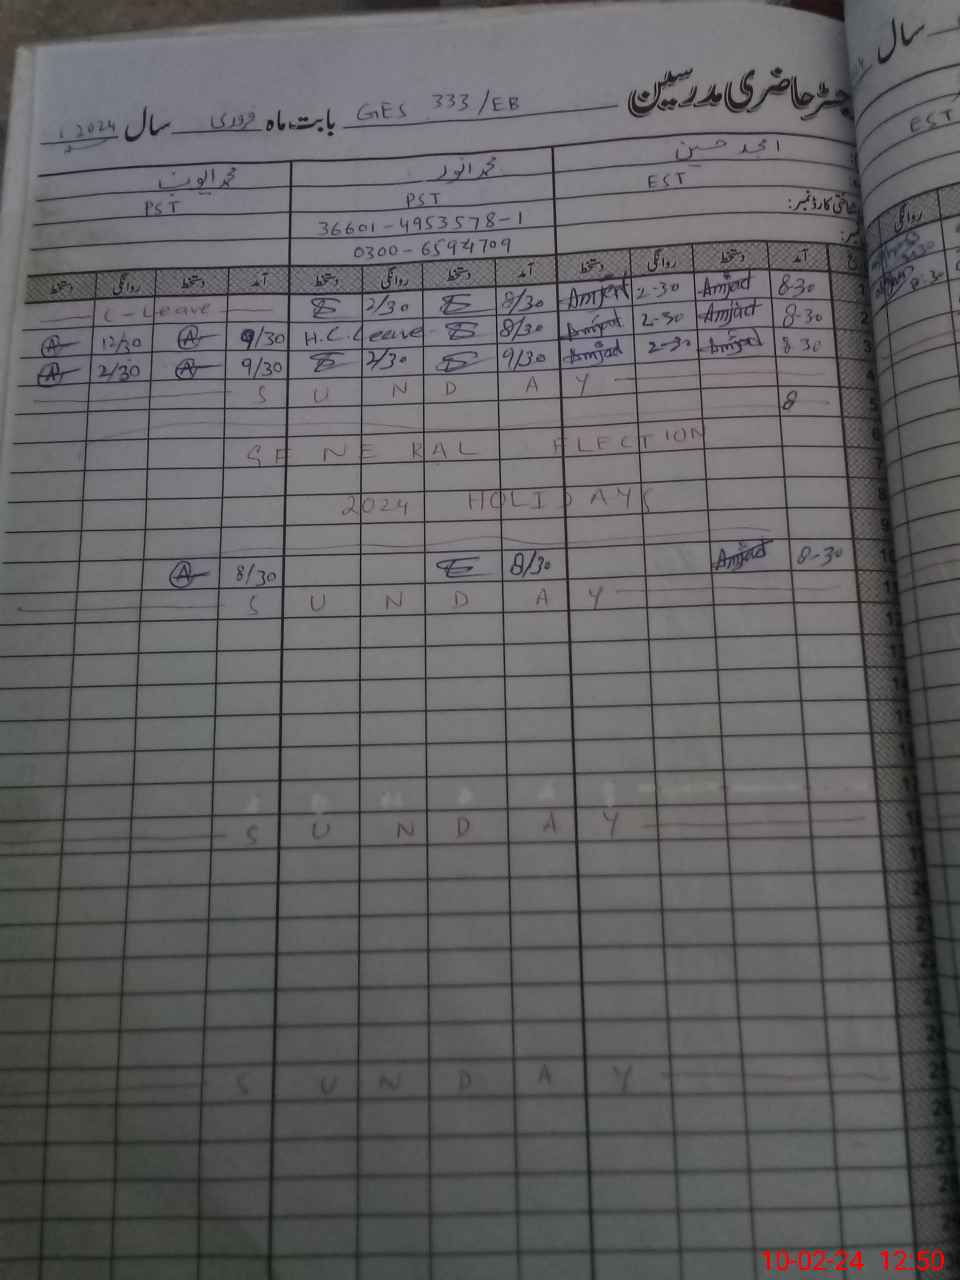 رجسٹر حاضری مدرسین
بابت ماہ GES 333/EB فروری سال 2024
امجد حسین محمد انور محمد ایوب
EST PST PST
شناختی کارڈ نمبر: 36601-4953578-1
نمبر: 0300-6594709
آمد دستخط روانگی دستخط آمد دستخط روانگی دستخط آمد دستخط روانگی دستخط
1 8-30 Amjad 2-30 Amjad 8/30 2/30 C-Leave
2 8-30 Amjad 2-30 Amjad 8/30 H.C.Leave 9/30 A 12/30 A
3 8 30 Amjad 2-30 Amjad 9/30 2/30 9/30 A 2/30 A
4 SUNDAY
5 8
6 GENERAL ELECTION
7
8 2024 HOLIDAYS
9
10 8-30 Amjad 8/30 8/30 A
SUNDAY
SUNDAY
SUNDAY
روانگی
EST
سال
10-02-24 12:50